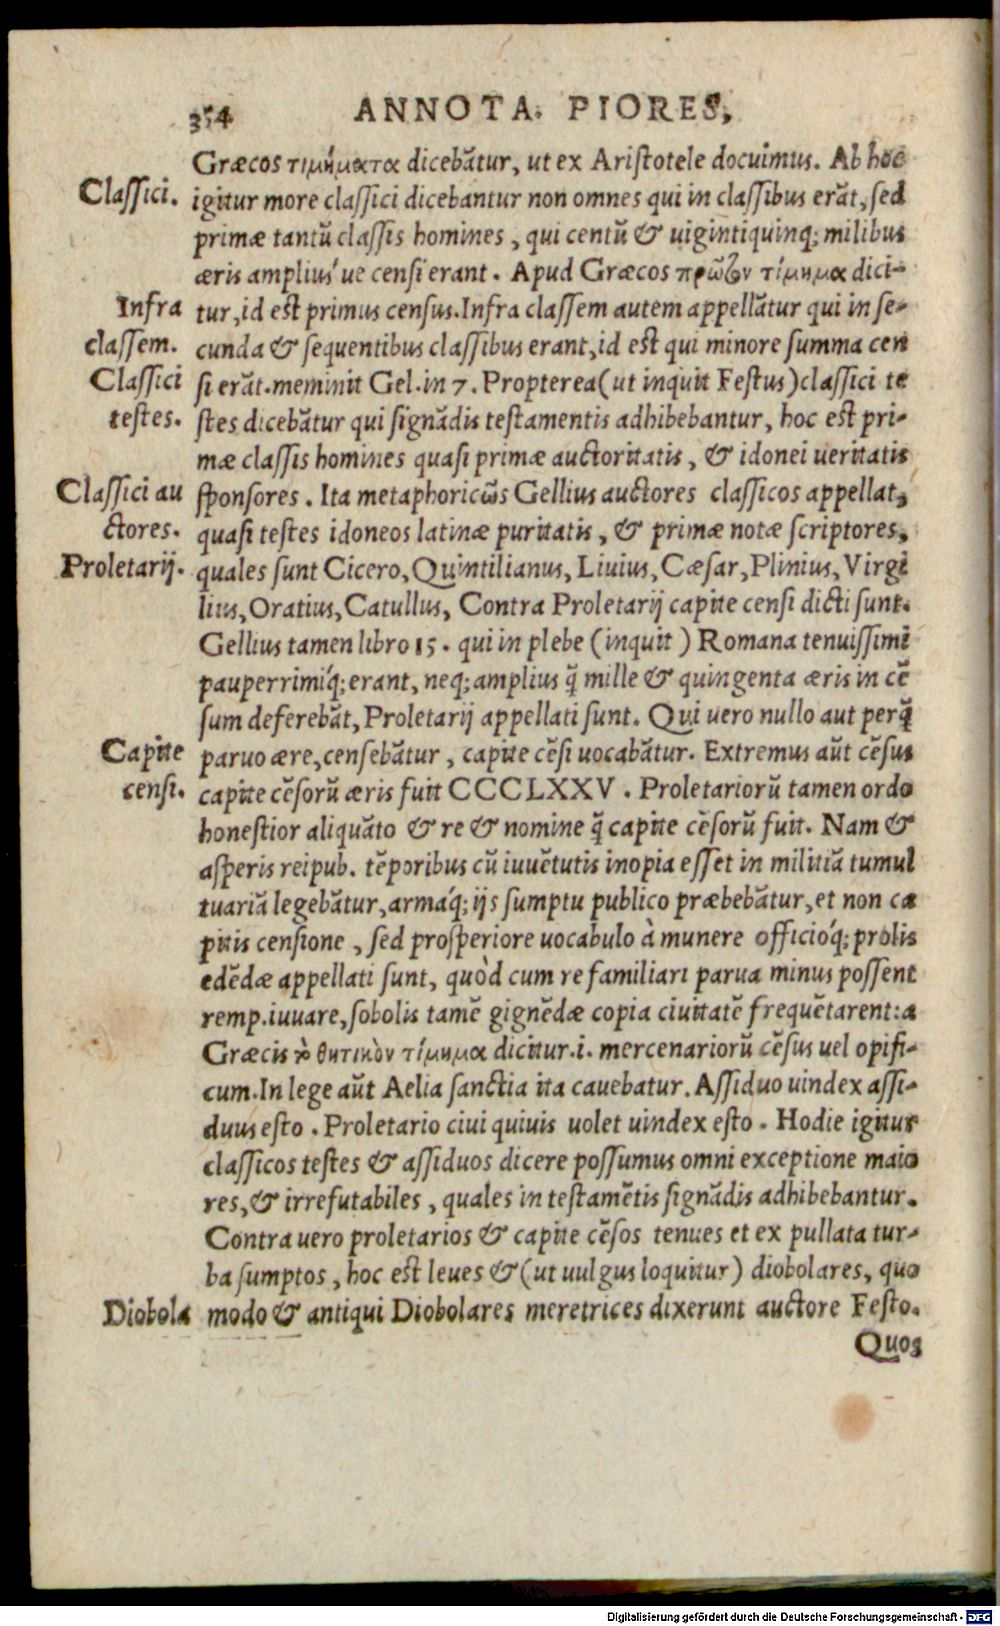 354 ANNOTA. PIORES,
Græcos τιμήματα dicebãtur, ut ex Ariſtotele docuimus. Ab hoc
Claſſici. igitur more claſſici dicebantur non omnes qui in claſſibus erãt, ſed
primæ tantũ claſſis homines, qui centũ & uigintiquinq; milibus
æris ampliusʹue cenſi erant. Apud Græcos πρῶτον τίμημα dici-
Infra tur, id eſt primus cenſus. Infra claſſem autem appellãtur qui in ſe-
claſſem. cunda & ſequentibus claſſibus erant, id eſt qui minore ſumma cen
Claſſici ſi erãt. meminit Gel. in 7. Propterea (ut inquit Feſtus) claſſici te
teſtes. ſtes dicebãtur qui ſignãdis teſtamentis adhibebantur, hoc eſt pri-
mæ claſſis homines quaſi primæ auctoritatis, & idonei ueritatis
Claſſici au ſponſores. Ita metaphoricῶs Gellius auctores claſſicos appellat,
ctores. quaſi teſtes idoneos latinæ puritatis, & primæ notæ ſcriptores,
Proletarij. quales ſunt Cicero, Quintilianus, Liuius, Cæſar, Plinius, Virgi
lius, Oratius, Catullus, Contra Proletarij capite cenſi dicti ſunt.
Gellius tamen libro 15. qui in plebe (inquit) Romana tenuiſſimi
pauperrimiq́; erant, neq; amplius q̃ mille & quingenta æris in cẽ
ſum deferebãt, Proletarij appellati ſunt. Qui uero nullo aut perq̃
Capite paruo ære, cenſebãtur, capite cẽſi uocabãtur. Extremus aũt cẽſus
cenſi. capite cẽſorũ æris fuit CCCLXXV. Proletariorũ tamen ordo
honeſtior aliquãto & re & nomine q̃ capite cẽſorũ fuit. Nam &
aſperis reipub. tẽporibus cũ iuuẽtutis inopia eſſet in militiã tumul
tuariã legebãtur, armaq́; ijs ſumptu publico præbebãtur, et non ca
pitis cenſione, ſed proſperiore uocabulo à munere officioq́; prolis
edẽdæ appellati ſunt, quòd cum re familiari parua minus poſſent
remp. iuuare, ſobolis tamẽ gignẽdæ copia ciuitatẽ frequẽtarent: a
Græcis τὸ θητικὸν τίμημα dicitur .i. mercenariorũ cẽſus uel opifi-
cum. In lege aũt Aelia ſanctia ita cauebatur. Aſſiduo uindex aſſi-
duus eſto. Proletario ciui quiuis uolet uindex eſto. Hodie igitur
claſſicos teſtes & aſſiduos dicere poſſumus omni exceptione maio
res, & irrefutabiles, quales in teſtamẽtis ſignãdis adhibebantur.
Contra uero proletarios & capite cẽſos tenues et ex pullata tur-
ba ſumptos, hoc eſt leues & (ut uulgus loquitur) diobolares, quo
Diobola modo & antiqui Diobolares meretrices dixerunt auctore Feſto.
Quos
Digitalisierung gefördert durch die Deutsche Forschungsgemeinschaft - DFG